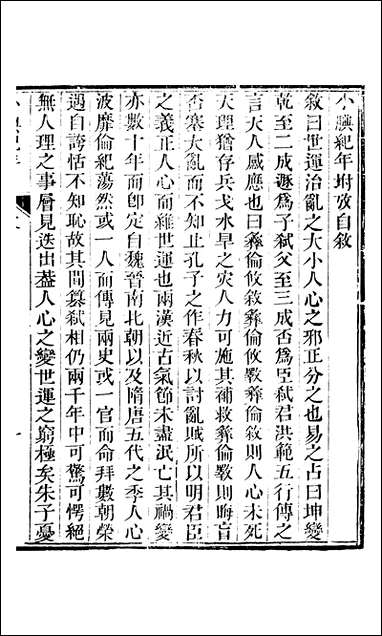 小腆紀年坿攷自敘
敘曰世運治亂之大小人心之邪正分之也易之占曰坤變
乾至二成遯爲子弑父至三成否爲臣弑君洪範五行傳之
言天人感應也曰彝倫攸敘彝倫攸斁彝倫敘則人心未死
天理猶存兵戈水旱之灾人力可施其補救彝倫斁則晦盲
否塞大亂而不知止孔子之作春秋以討亂賊所以明君臣
之義正人心而維世運也兩漢近古氣節未盡泯亡其禍變
亦數十年而卽定自魏晉南北朝以及隋唐五代之季人心
波靡倫紀蕩然或一人而傳見兩史或一官而命拜數朝榮
遇自誇恬不知恥故其間簒弑相仍兩千年中可驚可愕絕
無人理之事層見迭出葢人心之變世運之窮極矣朱子憂